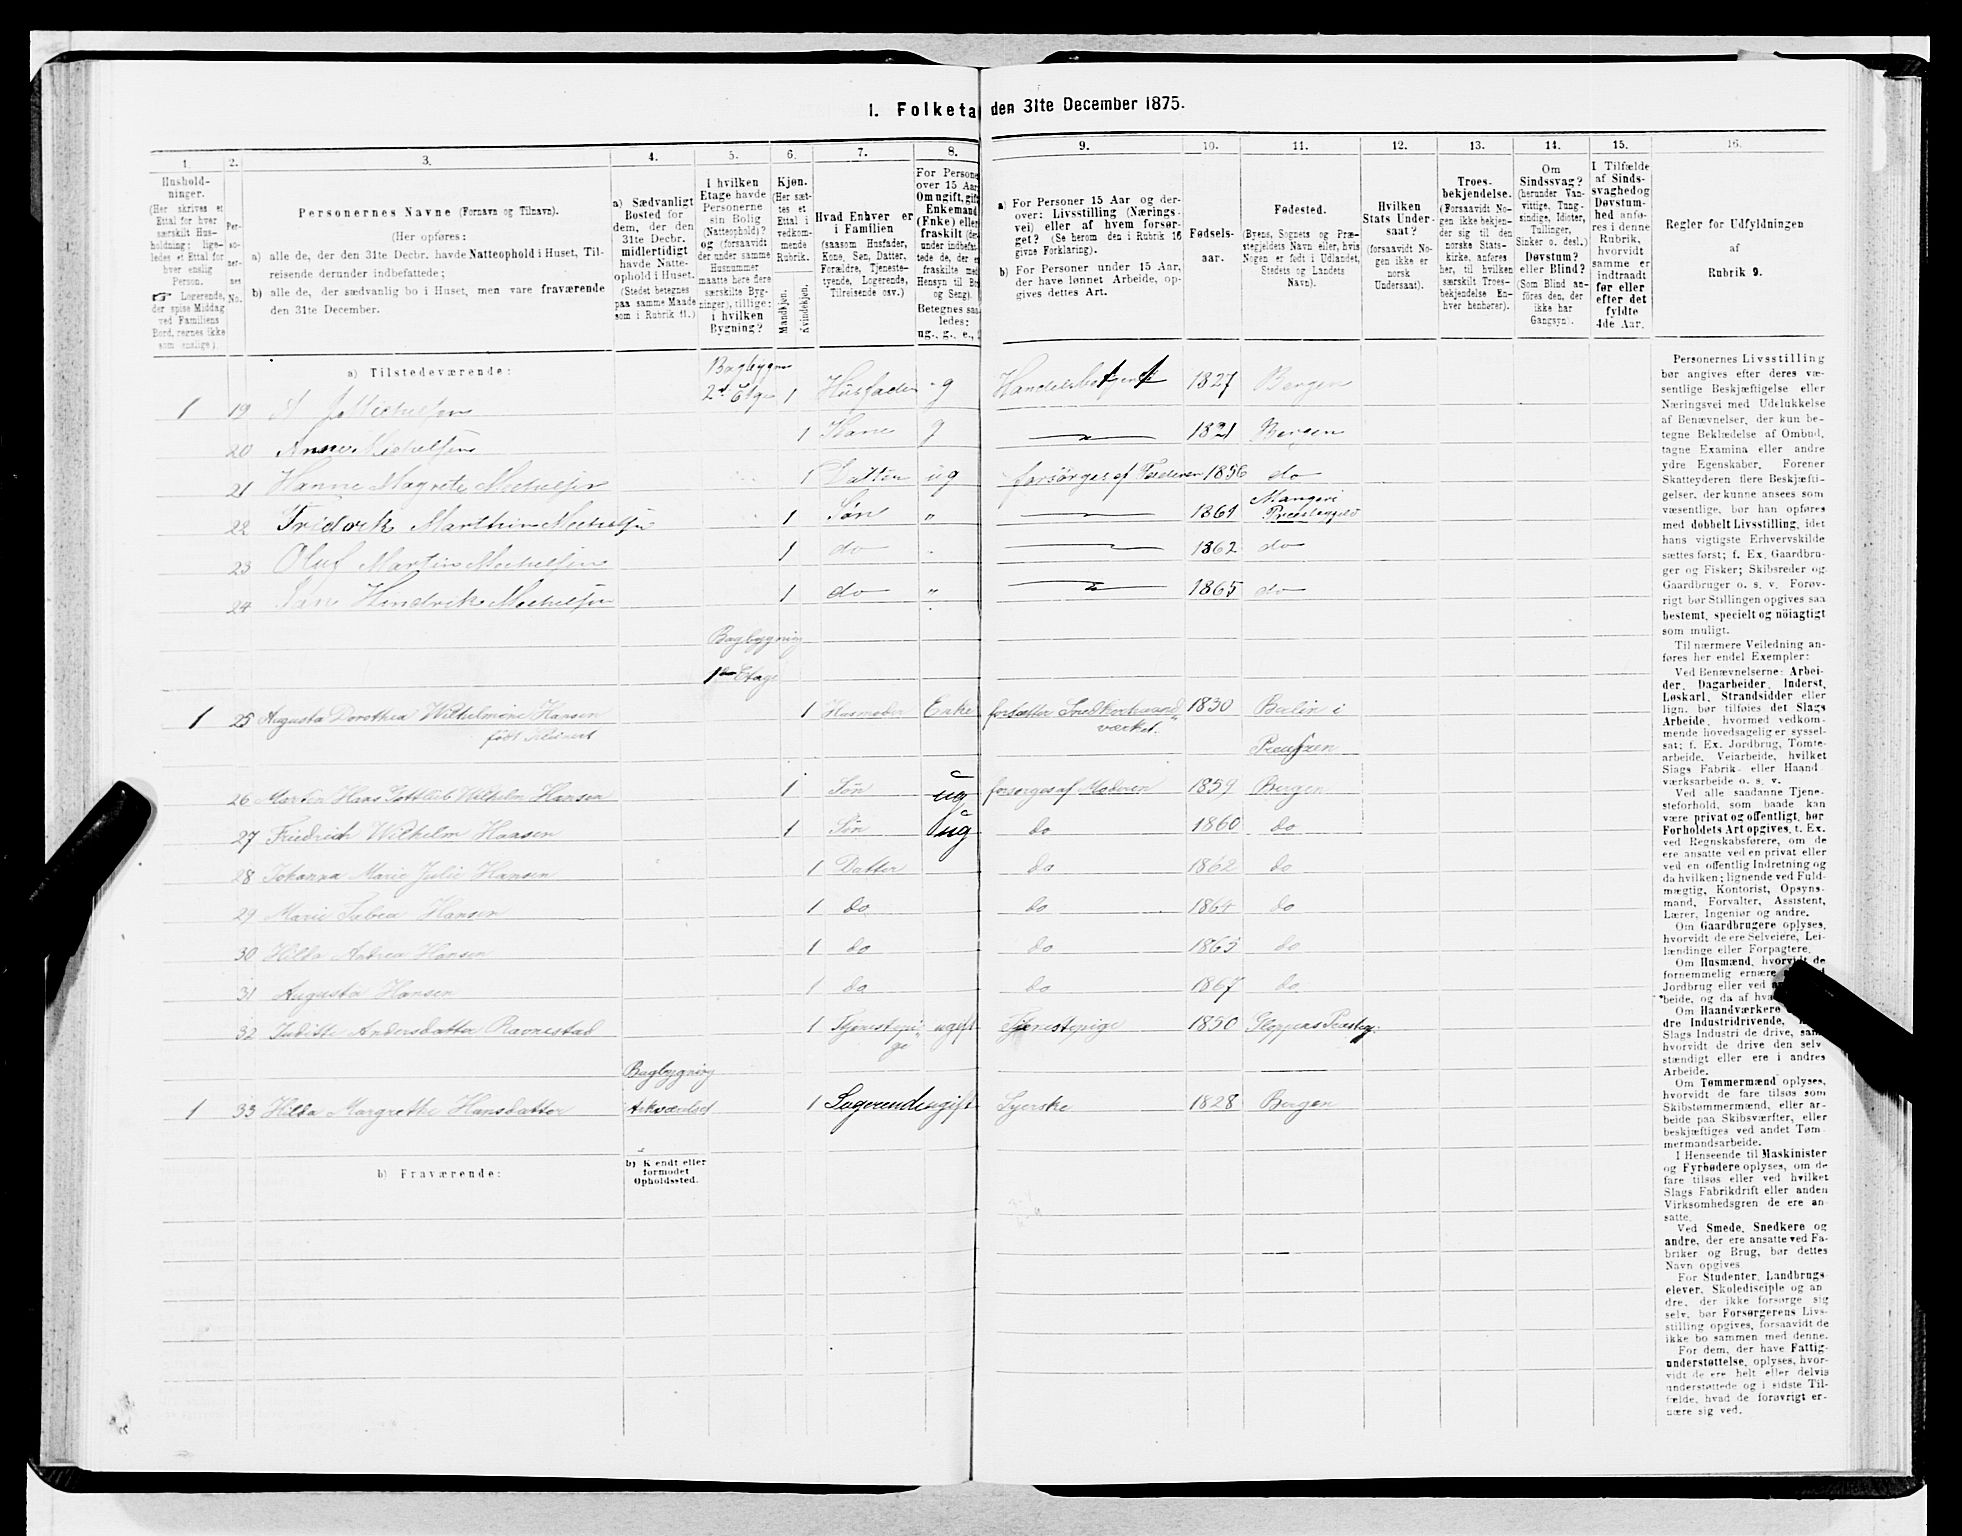 1. Folketa den 31te December 1875.
1. 2. 3. 4. 5. 6. 7. 8. 9. 10. 11. 12. 13. 14. 15. 16.
Hushold-
ninger.
(Her skrives et
Ettal for hver
særskilt Hus-
holdning; lige-
ledes et Ettal for
hver enslig
Person.
Logerende,
der spise Middag
ved Familiens
Bord, regnes ikke
som enslige).
Per-
so-
ner-
nes
No.
Personernes Navne (Fornavn og Tilnavn).
(Her opføres:
a) alle de, der den 31te Decbr. havde Natteophold i Huset, Til-
reisende derunder indbefattede;
b) alle de, der sædvanlig bo i Huset, men vare fraværende
den 31te December.
a) Sædvanligt
Bosted for
dem, der den
31te Decbr.
midlertidigt
havde Natte-
ophold i Huset.
(Stedet betegnes
paa samme Maade
som i Rubrik 11.)
I hvilken
Etage havde
Personerne
sin Bolig
(Natteophold)?
og (forsaavidt
der under samme
Husnummer
maatte høre flere
særskilte Byg-
ninger), tillige:
i hvilken
Bygning?
Kjøn.
(Her sæt-
tes et
Ettal i
vedkom-
mende
Rubrik.
Mandkjøn.
Kvindekjøn.
Hvad Enhver er
i Familien
(saasom Husfader,
Kone, Søn, Datter,
Forældre, Tjeneste-
tyende, Logerende,
Tilreisende osv.)
For Persone
over 15 Aar
Om ugift, gift
Enkemand
(Enke) eller
fraskilt (de
under indbefat-
tede de, der e
fraskilte med
Hensyn til Bo
og Seng).
Betegnes saa
ledes:
ug., g., e.,
a) For Personer 15 Aar og der-
over: Livsstilling (Nærings-
vei) eller af hvem forsør-
get? (Se herom den i Rubrik 16
givne Forklaring).
b) For Personer under 15 Aar,
der have lønnet Arbeide, op-
gives dettes Art.
Fødsels-
aar.
Fødested.
(Byens, Sognets og Præ-
stegjeldets Navn eller, hvis
Nogen er født i Udlandet,
Stedets og Landets
Navn).
Hvilken
Stats Under-
saat?
(forsaavidt No-
gen ikke er
norsk
Undersaat).
Troes-
bekjendelse.
(Forsaavidt No-
gen ikke bekjen-
der sig til den
norske Stats-
kirke, anføres
her, til hvilken
særskilt Troes-
bekjendelse En-
hver henhører).
Om
Sindssvag?
(herunder Van-
vittige, Tung-
sindige, Idioter,
Tullinger,
Sinker o. desl.)
Døvstum?
eller Blind?
(Som Blind an-
føres den, der
ikke har
Gangsyn).
I Tilfælde
af Sinds-
svaghed og
Døvstum-
hed anfø-
res i denne
Rubrik,
hvorvidt
samme er
indtraadt
før eller
efter det
fyldte
4de Aar.
Regler for Udfyldningen
af
Rubrik 9.
a) Tilstedeværende:
Bagbygn
1 19 Michelsen 2d Etge 1 Husfader g 1827 Bergen
20 Anne Michelsen 1 Kone g 1821 Bergen
21 Hanne Magrete Mechelsen 1 Datter ug forsørges af Faderen 1856 do
22 Fridork Marthin Mechelsen 1 Søn " 1861 Mangeri
23 Oluf Martin Mechelsen 1 do 1862 do
24 Hendrik Mechelsen 1 do " 1865 do
Bagbygning
1ste Etage
1 25 Augusta Dorothea Wilhelmine Hansen 1 Husmoder Enke fortsætter Snedkerhaand 1830 Berlin i
født værket. Preuszen
26 Martin Hans Gottlieb Wilhelm Hansen 1 Søn ug forsørges af Moderen 1859 Bergen
27 Friedrich Wilhelm Hansen 1 Søn ug do 1860 do
28 Johanna Marie Julie Hansen 1 Datter do 1862 do
29 Marie Hansen 1 do do 1864 do
30 Hilda Andrea Hansen 1 do do 1865 do
31 Augusta Hansen 1 do do 1867 do
32 Andersdatter Ravnestad 1 Tjenestepi ugift Tjenestepige 1850 Gloppens Præsteg:
ge
Bagbygning
1 33 Hilda Margrethe Hansdatter 1 Logerende ugift Syerske 1828 Bergen
b) Fraværende:
b) K endt eller
formodet
Opholdssted.
Personernes Livsstilling
bør angives efter deres væ-
sentlige Beskjæftigelse eller
Næringsvei med Udelukkelse
af Benævnelser, der kun be-
tegne Beklædelse af Ombud,
tagne Examina eller andre
ydre Egenskaber. Forener
Skatteyderen flere Beskjæfti-
gelser, der kunne ansees som
væsentlige, bør han opføres
med dobbelt Livsstilling, idet
hans vigtigste Erhvervskilde
sættes først; f. Ex. Gaardbru-
ger og Fisker; Skibsreder og
Gaardbruger o. s. v. Forøv-
rigt bør Stillingen opgives saa
bestemt, specielt og nöiagtigt
som muligt.
Til nærmere Veiledning an-
føres her endel Exempler:
Ved Benævnelserne: Arbei-
der, Dagarbeider, Inderst,
Løskarl, Strandsidder eller
lign. bør tilføies det Slags
Arbeide, hvormed vedkom-
mende hovedsagelig er syssel-
sat; f. Ex. Jordbrug, Tomte-
arbeide, Veiarbeide, hvilket
Slags Fabrik- eller Haand
værksarbeide o. s. v.
Ved alle saadanne Tjene-
steforhold, som baade kan
være privat og offentligt, bør
Forholdets Art opgives, t. Ex.
ved Regnskabsførere, om de
ere ansatte ved en privat eller
ved en offentlig Indretning og
da hvilken; lignende ved Fuld-
mægtig, Kontorist, Opsyns-
mand, Forvalter, Assistent,
Lærer, Ingeniør og andre.
Om Gaardbrugere oplyses,
hvorvidt de ere Selveiere, Lei-
lændinge eller Forpagtere.
Om Husmænd, hvorvidt de
fornemmelig ernære
Jordbrug eller ved
beide, og da af hva
Om Haandværkere
dre Industridrivende,
Slags Industri de drive, samt
hvorvidt de drive den selv-
stændigt eller ere i andres
Arbeide.
Om Tømmermænd oplyses,
hvorvidt de fare tilsøs som
Skibstømmermænd, eller ar-
beide paa Skibsværfter, eller
beskjæftiges ved andet Tøm-
mermandsarbeide.
I Henseende til Maskinister
og Fyrbødere oplyses, om de
fare tilsøs eller ved hvilket
Slags Fabrikdrift eller anden
Virksomhedsgren de ere an-
satte.
Ved Smede, Snedkere og
andre, der ere ansatte ved Fa-
briker og Brug, bør dettes
Navn opgives
For Studenter, Landbrugs-
elever, Skoledisciple og an
dre, der ikke forsørge sig
selv, bør Forsørgerens Livs-
stilling opgives, forsaavidt de
ikke bo sammen med denne.
For dem, der have Fattig-
understøttelse, oplyses, hvor-
vidt de ere helt eller delvis
understøttede og i sidste Til-
fælde, hvad de forøvrigt er-
nære sig ved.